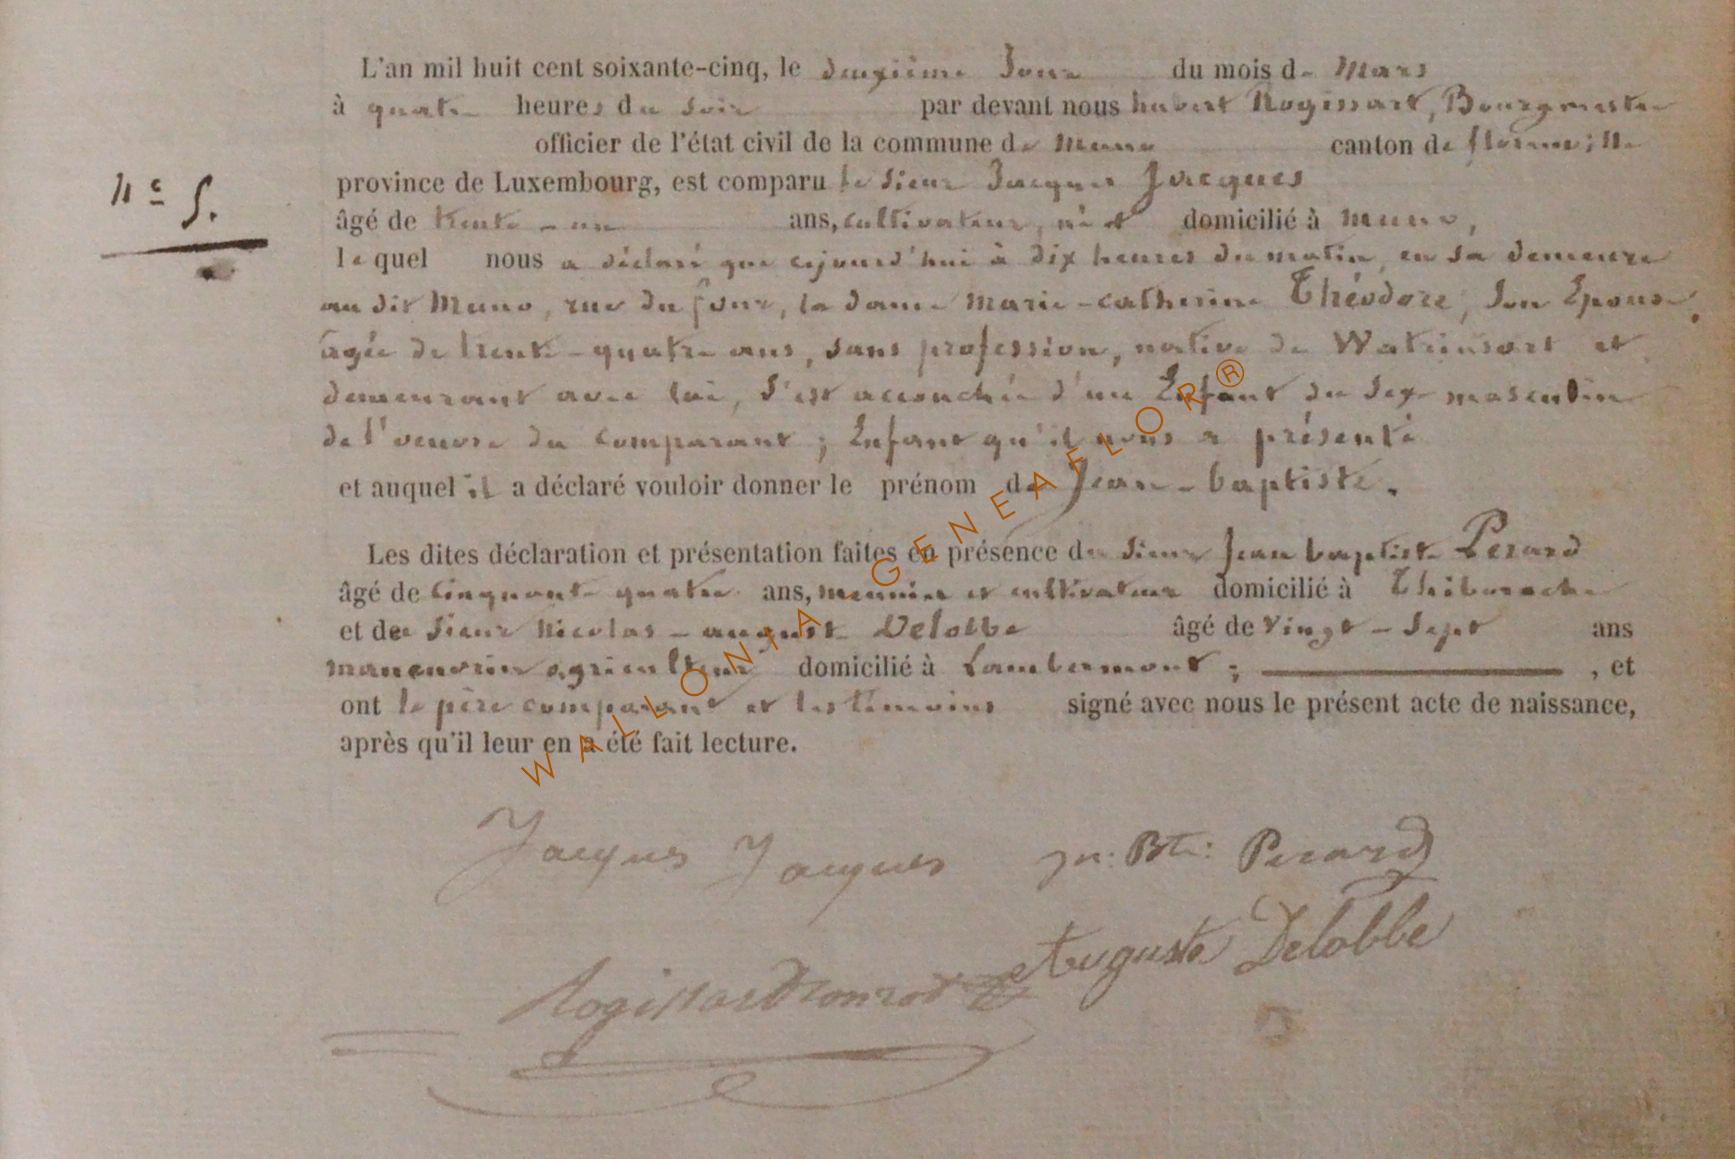 L'an mil huit cent soixante-cinq, le deuxième Jour du mois de Mars
à quatre heures du soir par devant nous hubert Rogissart, Bourgmestre
officier de l'état civil de la commune de Muno canton de florenville
province de Luxembourg, est comparu le sieur Jacques Jacques
N° 5.
âgé de trente-un ans, cultivateur, né et domicilié à Muno,
lequel nous a déclaré que cejourd'hui à dix heures du matin, en sa demeure
au dit Muno, rue du four, la dame Marie-catherine Théodore, son Epouse,
agée de trente-quatre ans, sans profession, native de Watrinsart et
demeurant avec lui, s'est accouchée d'un Enfant du sexe masculin
de l'oeuvre du comparant; Enfant qu'il nous a présenté
et auquel il a déclaré vouloir donner le prénom de Jean-baptiste.
Les dites déclaration et présentation faites en présence du sieur Jean baptiste Perard
âgé de cinquante quatre ans, meunier et cultivateur domicilié à
et du sieur Nicolas-auguste Delobbe âgé de vingt-sept ans
agriculteur domicilié à Lambermont; , et
ont le père comparant et les témoins signé avec nous le présent acte de naissance,
après qu'il leur en a été fait lecture.
WALLONIA GENEAFLOR®
Jacques Jacques Jn: Bte: Perard
Auguste Delobbe
Rogissart